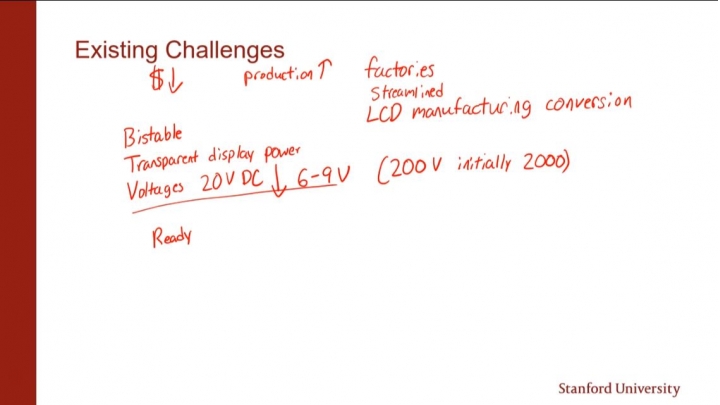 Existing Challenges
$↓ production↑ factories
Streamlined
LCD manufacturing conversion
Bistable
Transparent display power
Voltages 20V DC ↓ 6-9V (200V initially 2000)
Ready
Stanford University